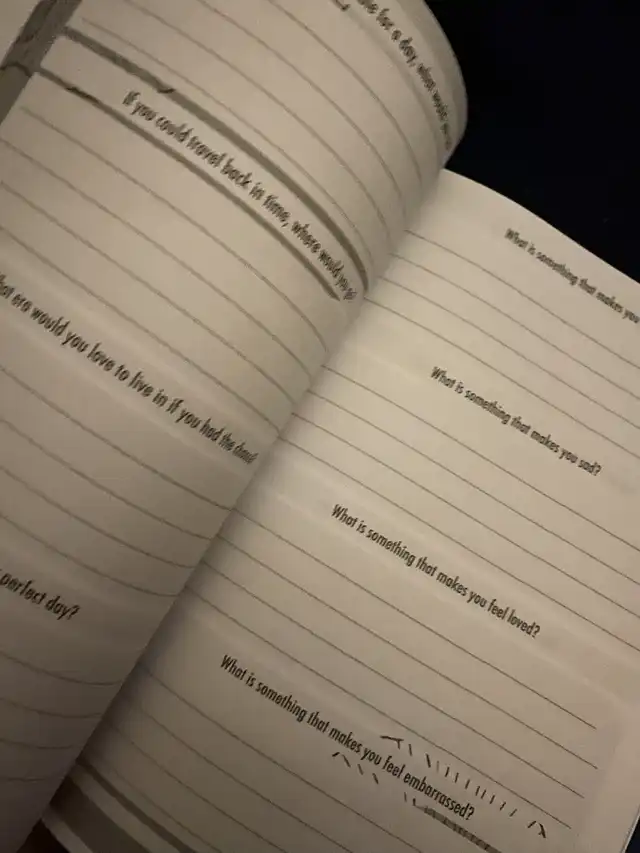 for a day, what would you
If you could travel back in time, where would you go?
era would you love to live in if you had the chance?
perfect day?
What is something that makes you
What is something that makes you sad?
What is something that makes you feel loved?
What is something that makes you feel embarrassed?